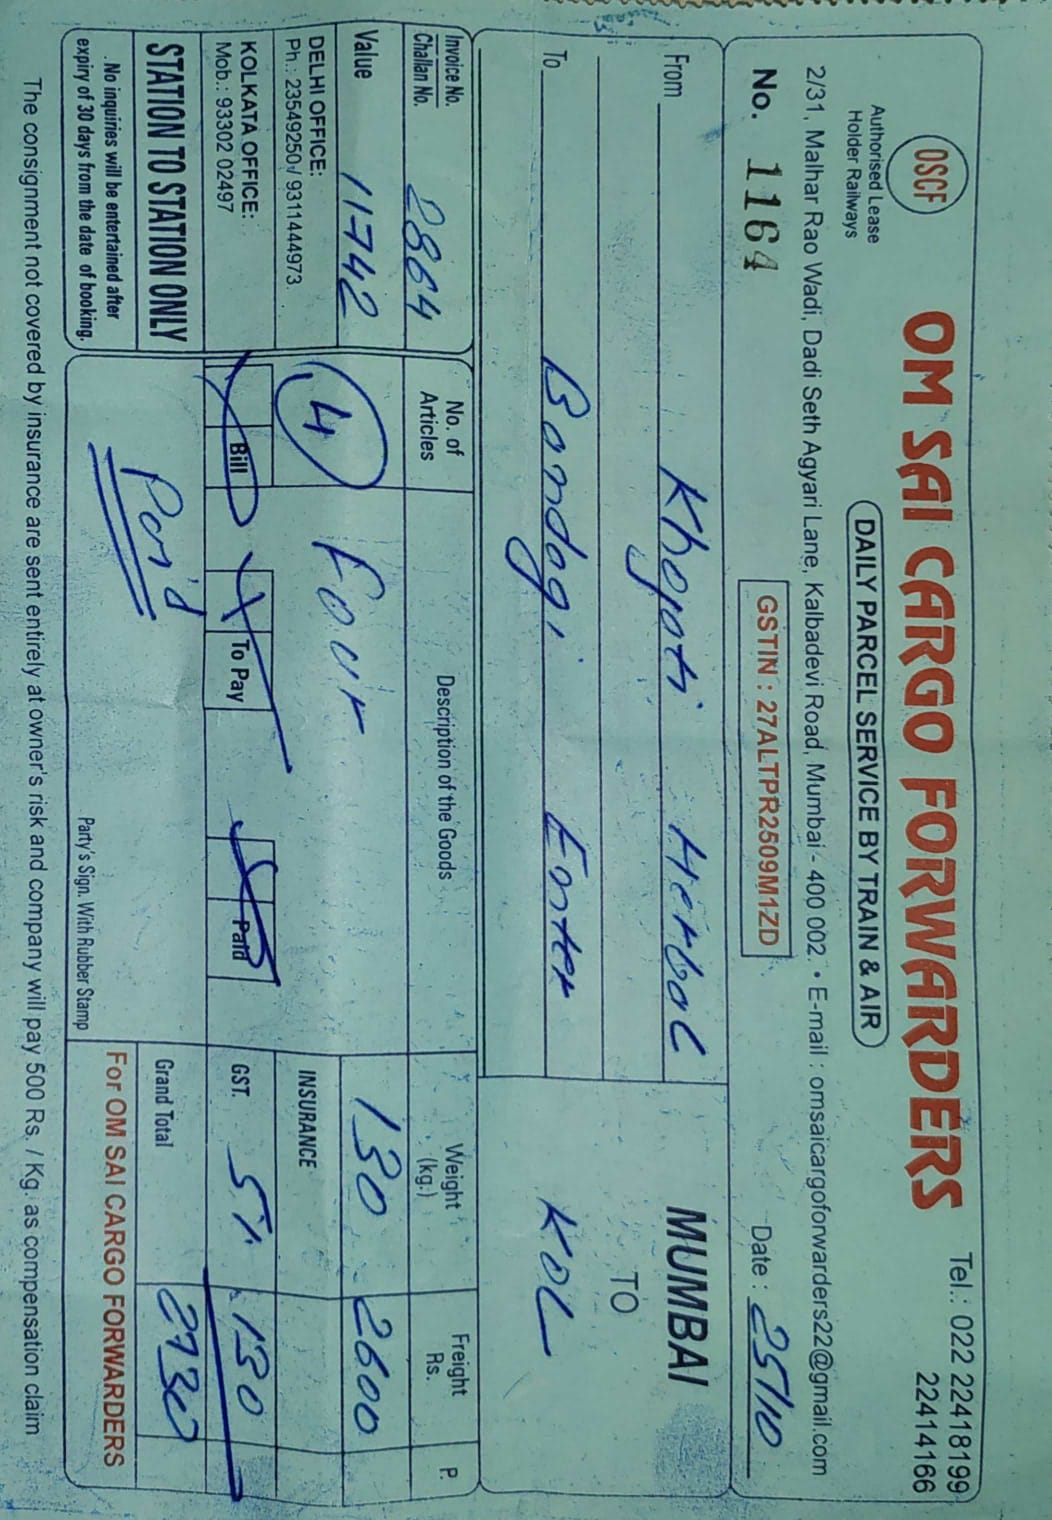 OSCF
OM SAI CARGO FORWARDERS
Tel.: 022 22418199
22414166
Authorised Lease
Holder Railways
DAILY PARCEL SERVICE BY TRAIN & AIR
2/31, Malhar Rao Wadi, Dadi Seth Agyari Lane, Kalbadevi Road, Mumbai - 400 002. • E-mail : omsaicargoforwarders22@gmail.com
No. 1164
GSTIN : 27ALTPR2509M1ZD
Date : 25/10
From Khopoti Herbal
MUMBAI
TO
To Bandagi Enter
KOL
Invoice No. 2864
Challan No.
No. of Articles
Description of the Goods
Weight (kg.)
Freight Rs.
P.
Value 11742
4
Four
130
2600
DELHI OFFICE:
Ph.: 23549250 / 9311444973
INSURANCE
KOLKATA OFFICE:
Mob.: 93302 02497
Bill
To Pay
Paid
GST. 5% 130
STATION TO STATION ONLY
Paid
Grand Total 2730
No inquiries will be entertained after
expiry of 30 days from the date of booking.
Party's Sign. With Rubber Stamp
For OM SAI CARGO FORWARDERS
The consignment not covered by insurance are sent entirely at owner's risk and company will pay 500 Rs. / Kg. as compensation claim